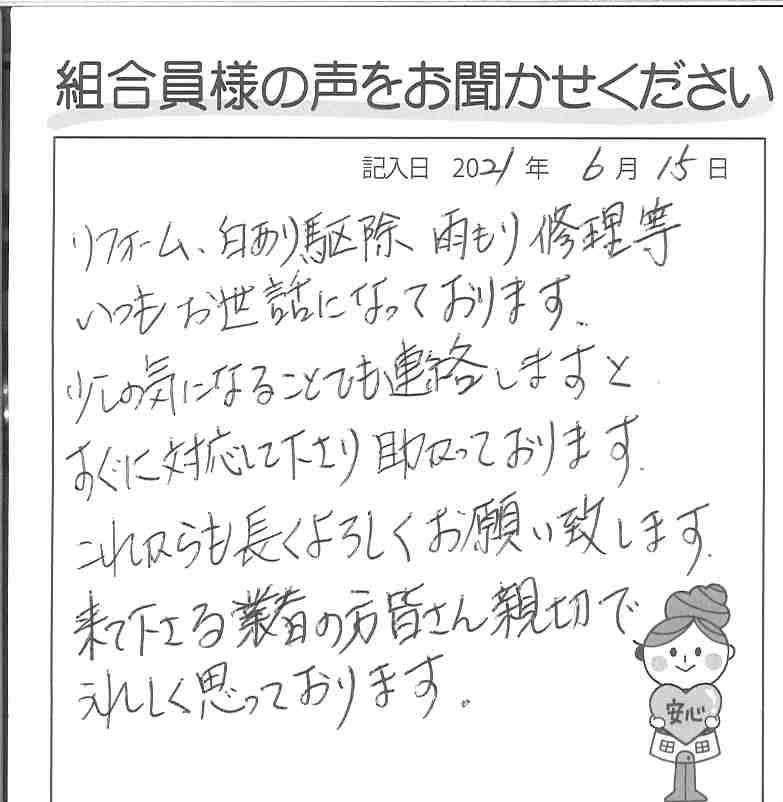 組合員様の声をお聞かせください
記入日 2021年 6月15日
リフォーム、白あり駆除、雨もり修理等
いつもお世話になっております。
少しの気になることでも連絡しますと
すぐに対応して下さり助かっております。
これからも長くよろしくお願い致します。
来て下さる業者の方皆さん親切で
うれしく思っております。
安心